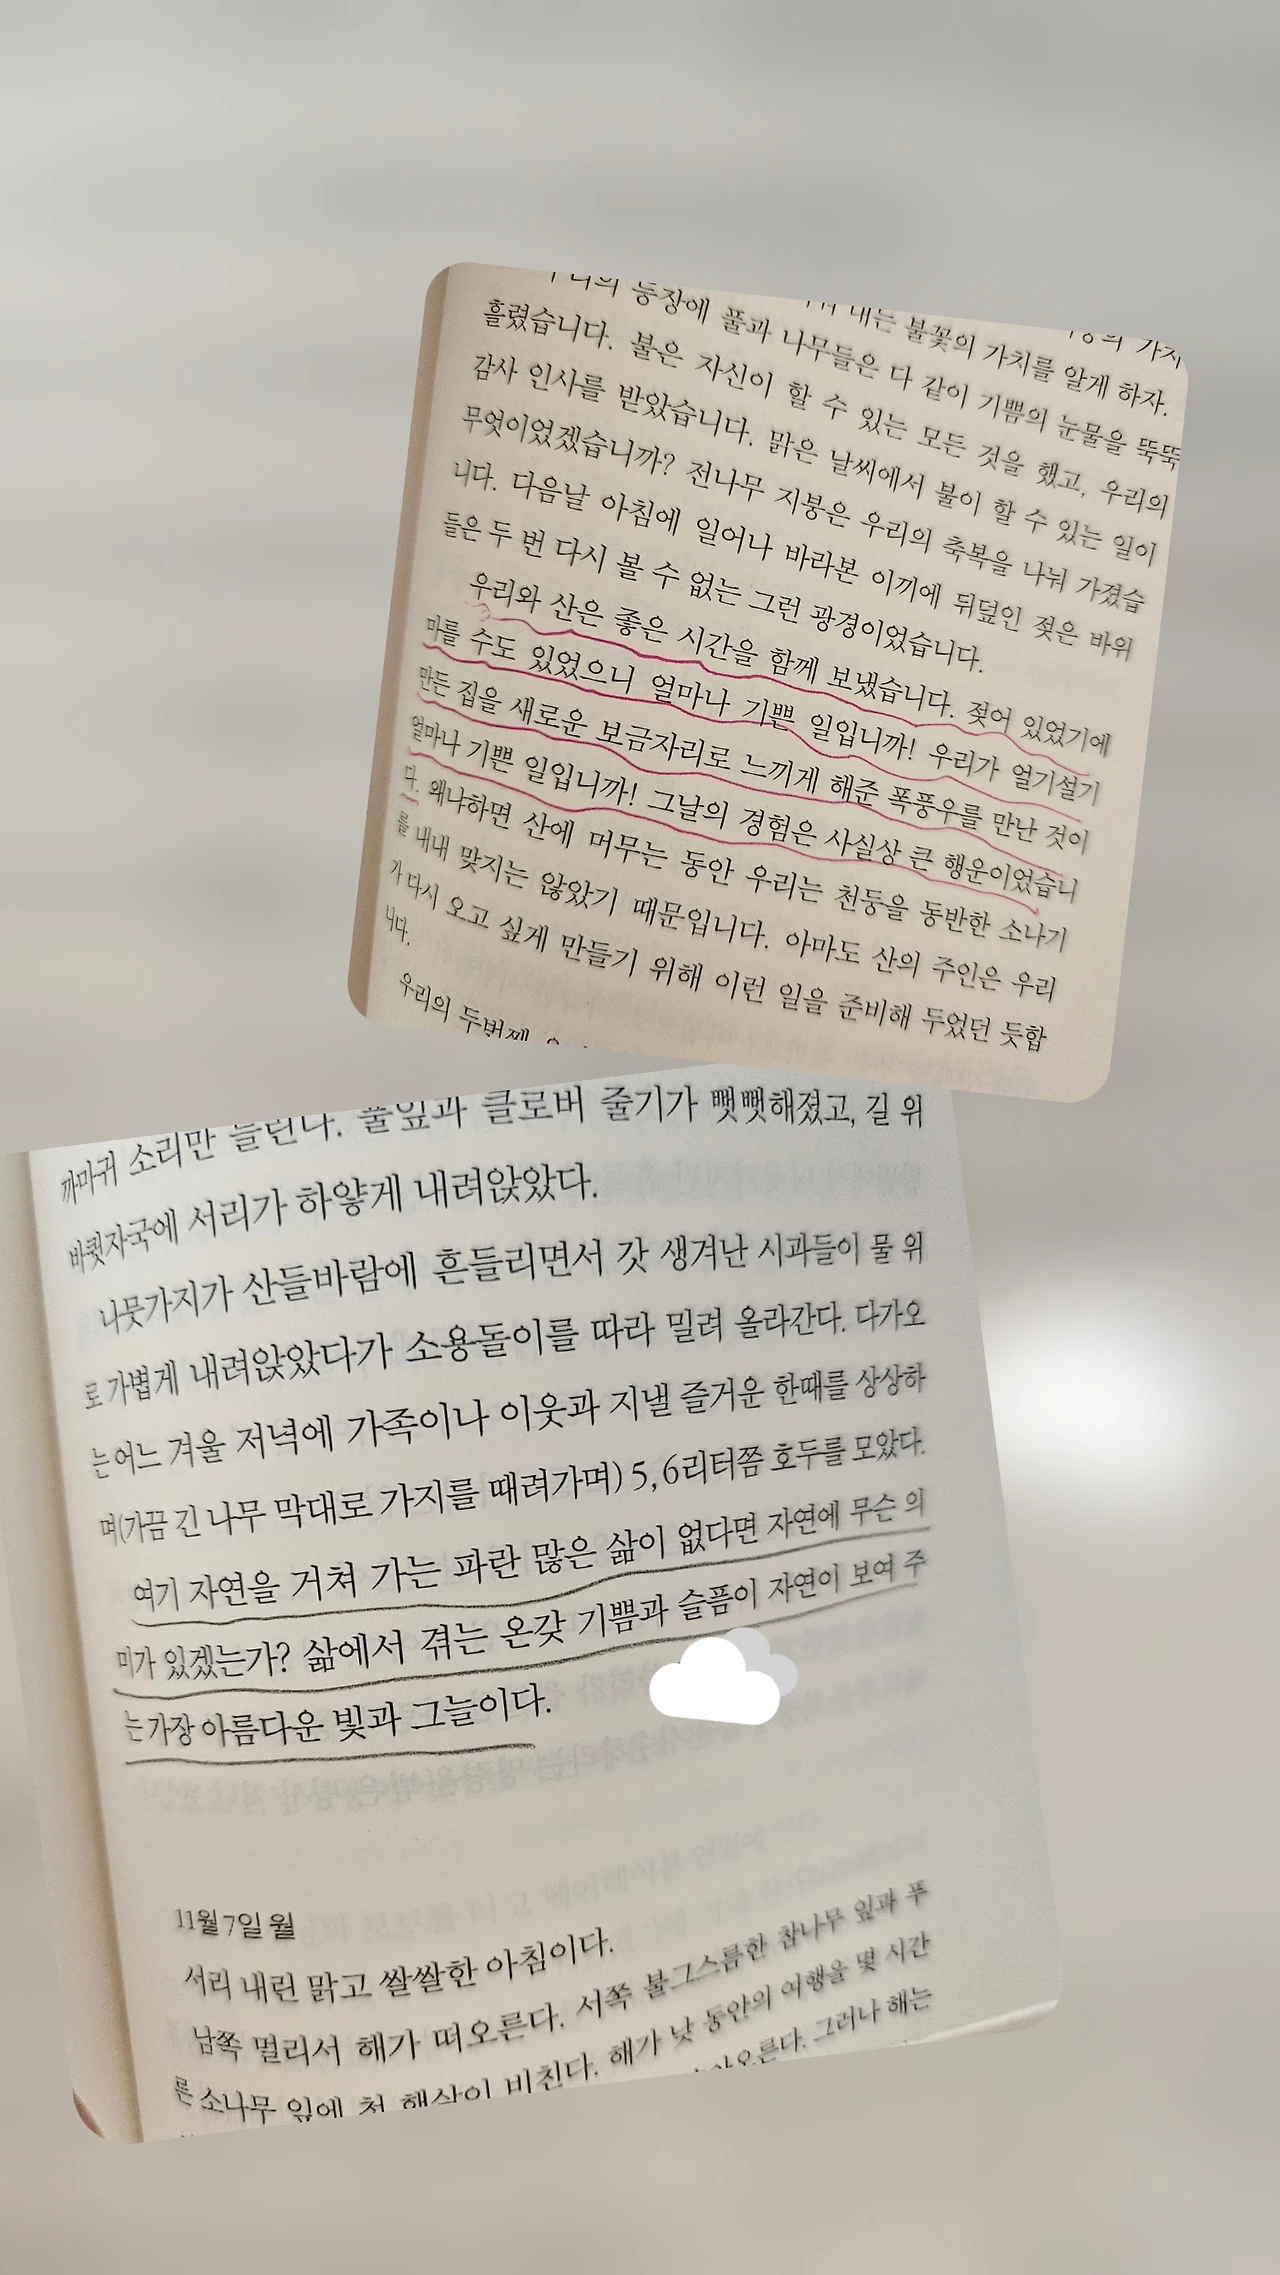 등장에 풀과 내는 불꽃의 가치를 알게 하자.
흘렸습니다. 불은 자신이 할 수 있는 모든 것을 했고, 우리의
감사 인사를 받았습니다. 맑은 날씨에서 불이 할 수 있는 일이
무엇이었겠습니까? 전나무 지붕은 우리의 축복을 나눠 가졌습
니다. 다음날 아침에 일어나 바라본 이끼에 뒤덮인 젖은 바위
들은 두 번 다시 볼 수 없는 그런 광경이었습니다.
우리와 산은 좋은 시간을 함께 보냈습니다. 젖어 있었기에
마를 수도 있었으니 얼마나 기쁜 일입니까! 우리가 얼기설기
만든 집을 새로운 보금자리로 느끼게 해준 폭풍우를 만난 것이
얼마나 기쁜 일입니까! 그날의 경험은 사실상 큰 행운이었습니
다. 왜냐하면 산에 머무는 동안 우리는 천둥을 동반한 소나기
를 내내 맞지는 않았기 때문입니다. 아마도 산의 주인은 우리
가 다시 오고 싶게 만들기 위해 이런 일을 준비해 두었던 듯합
니다.
우리의 두번째
까마귀 소리만 들린다. 풀잎과 클로버 줄기가 뻣뻣해졌고, 길 위
바큇자국에 서리가 하얗게 내려앉았다.
나뭇가지가 산들바람에 흔들리면서 갓 생겨난 시과들이 물 위
로 가볍게 내려앉았다가 소용돌이를 따라 밀려 올라간다. 다가오
는 어느 겨울 저녁에 가족이나 이웃과 지낼 즐거운 한때를 상상하
며(가끔 긴 나무 막대로 가지를 때려가며) 5, 6리터쯤 호두를 모았다.
여기 자연을 거쳐 가는 파란 많은 삶이 없다면 자연에 무슨 의
미가 있겠는가? 삶에서 겪는 온갖 기쁨과 슬픔이 자연이 보여 주
는 가장 아름다운 빛과 그늘이다.
11월 7일 월
서리 내린 맑고 쌀쌀한 아침이다.
남쪽 멀리서 해가 떠오른다. 서쪽 불그스름한 참나무 잎과 푸
른 소나무 잎에 첫 햇살이 비친다. 해가 낮 동안의 여행을 몇 시간
떠오른다. 그러나 해는